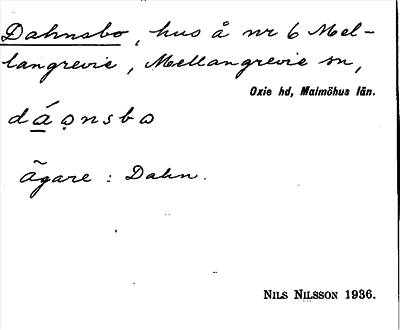 Dahnsbo, hus å nr 6 Mel-
langrevie, Mellangrevie sn,
Oxie hd, Malmöhus län.
dá̲ọnsbo
Ägare : Dahn.
NILS NILSSON 1936.